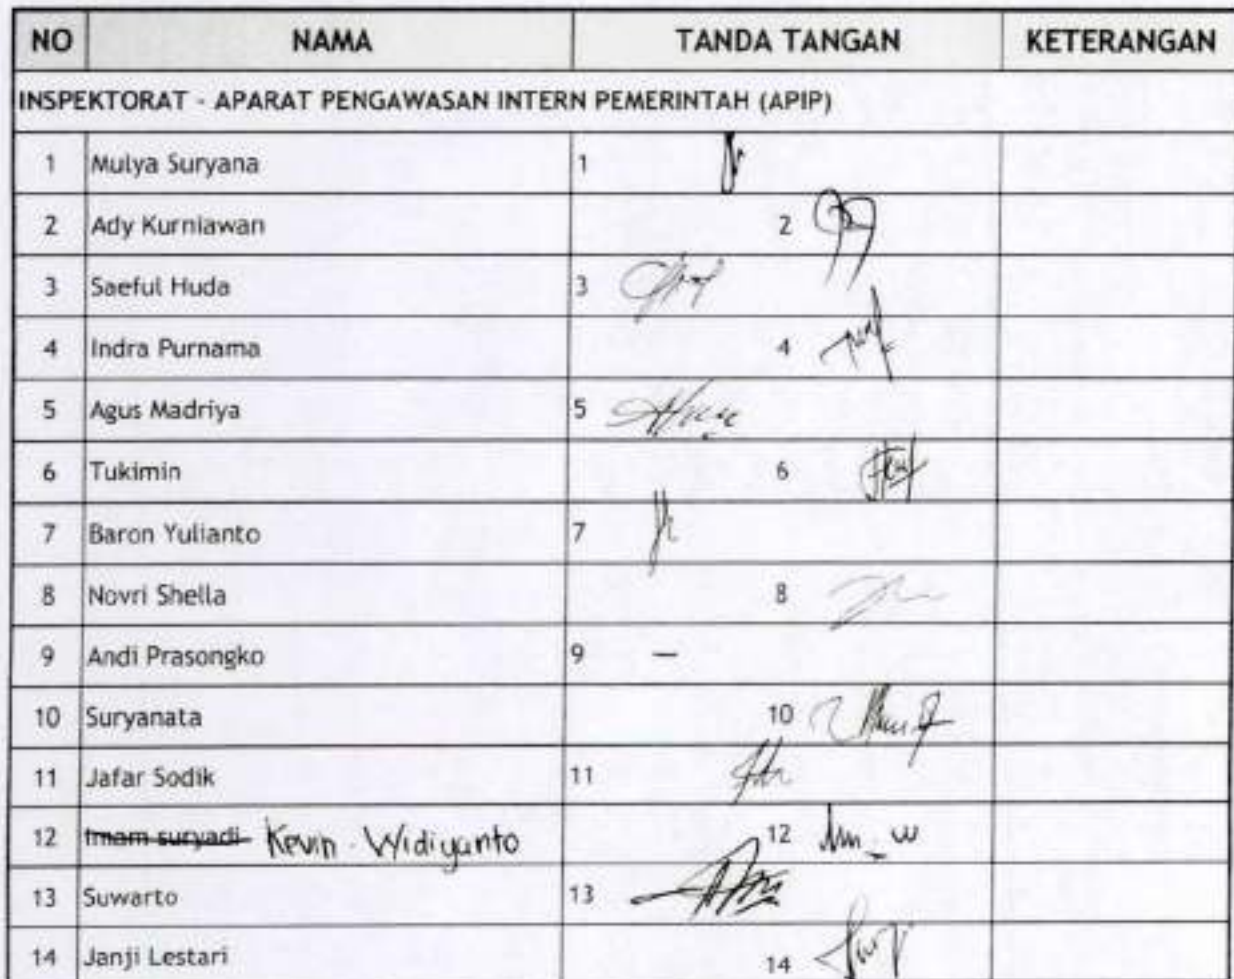 NO NAMA TANDA TANGAN KETERANGAN
INSPEKTORAT - APARAT PENGAWASAN INTERN PEMERINTAH (APIP)
1 Mulya Suryana 1
2 Ady Kurniawan 2
3 Saeful Huda 3
4 Indra Purnama 4
5 Agus Madriya 5
6 Tukimin 6
7 Baron Yulianto 7
8 Novri Shella 8
9 Andi Prasongko 9 -
10 Suryanata 10
11 Jafar Sodik 11
12 Imam suryadi Kevin . Widiyanto 12
13 Suwarto 13
14 Janji Lestari 14